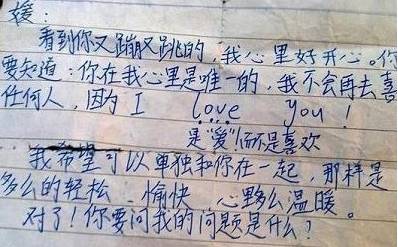 媛：
看到你又蹦又跳的，我心里好开心。你
要知道：你在我心里是唯一的，我不会再去喜
任何人，因为 I love you！
是“爱”而不是喜欢
我希望可以单独和你在一起，那样是
多么的轻松、愉快、心里多么温暖。
对了！你要问我的问题是什么？